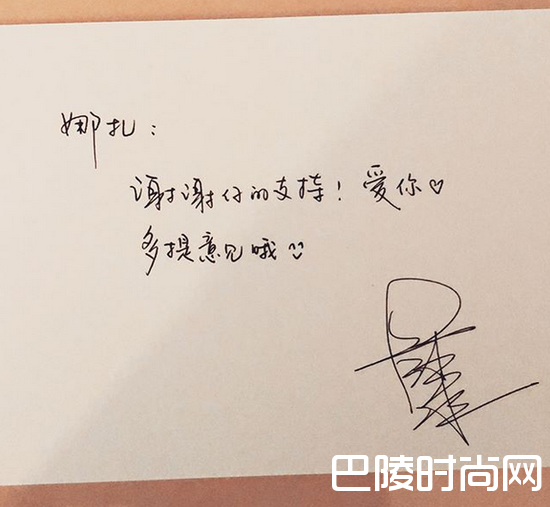 娜扎：
谢谢仔的支持！爱你♡
多提意见哦
巴陵时尚网